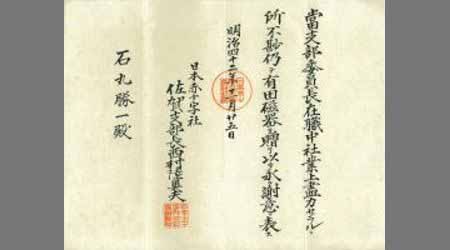 當支部委員長在職中社業上盡力セラルヽ
所不尠仍テ有田磁器ヲ贈リ以テ永ク謝意ヲ表ス
明治四十二年十一月廿五日
日本赤十字社
佐賀支部長西村陸奥夫
石丸勝一殿